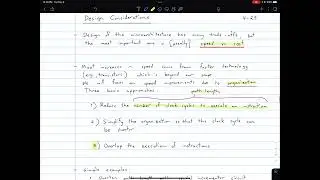 Design Considerations 4-29
- Design of this microarchitecture has many trade-offs, but
the most important one is (usually) speed vs cost
- Most increases in speed come from faster technology
(eg transistors) which is beyond our scope
- We will focus on speed improvements due to organization
Three basic approaches: path length
1) Reduce the number of clock cycles to execute an instruction
2) Simplify the organization so that the clock cycle can
be shorter
3) Overlap the execution of instructions
- Simple examples:
1) Shorten path length incrementer circuit